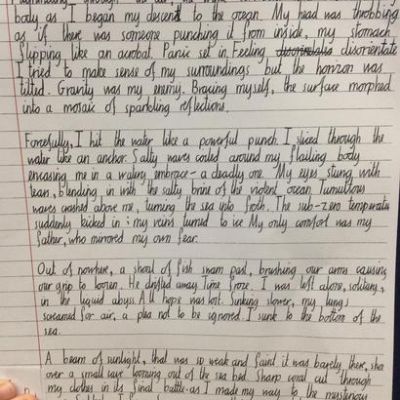 body as I began my descent to the ocean. My head was throbbing
as if there was someone punching it from inside, my stomach
flipping like an acrobat. Panic set in. Feeling disorientated
tried to make sense of my surroundings but the horizon was
tilted. Gravity was my enemy. Bracing myself, the surface morphed
into a mosaic of sparkling reflections.
Forcefully, I hit the water like a powerful punch. I sliced through the
water like an anchor. Salty waves coiled around my flailing body
encasing me in a watery embrace - a deadly one. My eyes stung with
tears, blending in with the salty brine of the violent ocean. Tumultous
waves crashed above me, turning the sea into froth. The sub-zero temperature
suddenly kicked in; my veins turned to ice. My only comfort was my
father, who mirrored my own fear.
Out of nowhere, a shoal of fish swam past, brushing our arms causing
our grip to loosen. He drifted away. Time froze. I was left alone, solitary,
in the liquid abyss. All hope was lost. Sinking slower, my lungs
screamed for air, a plea not to be ignored. I sunk to the bottom of the
sea.
A beam of sunlight, that was so weak and faint it was barely there, shone
over a small cave looming out of the sea bed. Sharp coral cut through
my clothes in its final battle as I made my way to the mysterious